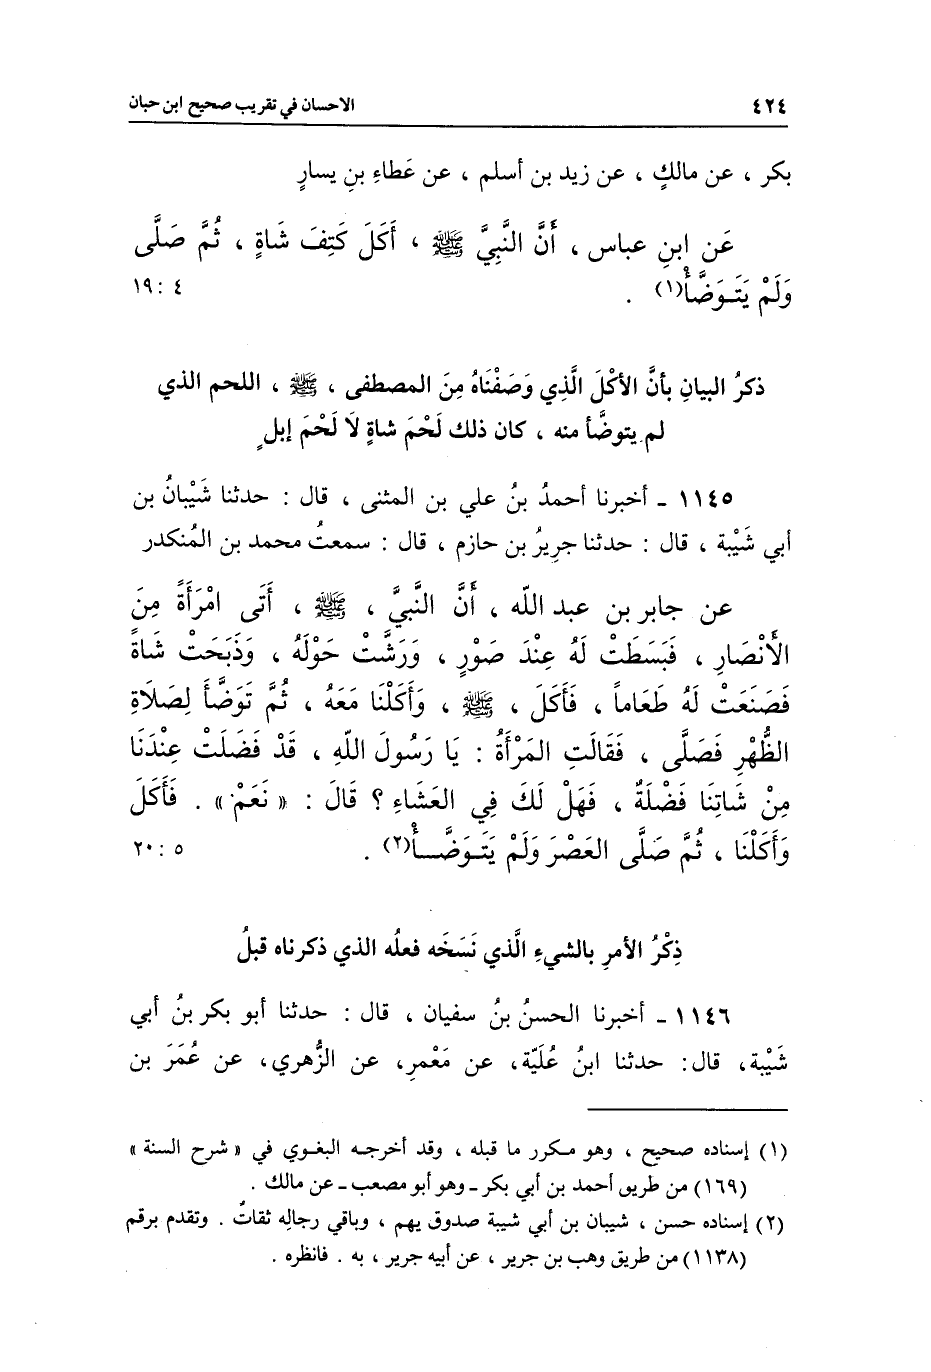 ٤٢٤ الاحسان في تقريب صحيح ابن حبان
بكر ، عن مالكٍ ، عن زيد بن أسلم ، عن عَطاءِ بنِ يسارٍ
عَن ابنِ عباس ، أَنَّ النَّبِيَّ ﷺ ، أَكَلَ كَتِفَ شَاةٍ ، ثُمَّ صَلَّى
وَلَمْ يَتَوَضَّأْ(١) . ٤ : ١٩
ذكرُ البيانِ بأنَّ الأكْلَ الَّذِي وَصَفْنَاهُ مِنَ المصطفى ، ﷺ ، اللحم الذي
لم يتوضَّأ منه ، كان ذلك لَحْمَ شاةٍ لَا لَحْمَ إبلٍ
١١٤٥ ـ أخبرنا أحمدُ بنُ علي بن المثنى ، قال : حدثنا شَيْبانُ بن
أبي شَيْبة ، قال : حدثنا جريرُ بن حازم ، قال : سمعتُ محمد بن المُنكدر
عن جابر بن عبد اللّه ، أَنَّ النَّبِيَّ ، ﷺ ، أَتَى امْرَأَةً مِنَ
الْأَنْصَارِ ، فَبَسَطَتْ لَهُ عِنْدَ صَوْرٍ ، وَرَشَّتْ حَوْلَهُ ، وَذَبَحَتْ شَاةً
فَصَنَعَتْ لَهُ طَعَاماً ، فَأَكَلَ ، ﷺ ، وَأَكَلْنَا مَعَهُ ، ثُمَّ تَوَضَّأَ لِصَلَاةِ
الظُّهْرِ فَصَلَّى ، فَقَالَتِ المَرْأَةُ : يَا رَسُولَ اللّهِ ، قَدْ فَضَلَتْ عِنْدَنَا
مِنْ شَاتِنَا فَضْلَةٌ ، فَهَلْ لَكَ فِي العَشَاءِ ؟ قَالَ : « نَعَمْ » . فَأَكَلَ
وَأَكَلْنَا ، ثُمَّ صَلَّى العَصْرَ وَلَمْ يَتَوَضَّأْ(٢) . ٥ : ٢٠
ذِكْرُ الأمرِ بالشيءِ الَّذي نَسَخَه فعلُه الذي ذكرناه قبلُ
١١٤٦ ـ أخبرنا الحسنُ بنُ سفيان ، قال : حدثنا أبو بكر بنُ أبي
شَيْبة، قال: حدثنا ابنُ عُلَيّة، عن مَعْمرٍ، عن الزُّهري، عن عُمَرَ بن
(١) إسناده صحيح ، وهو مكرر ما قبله ، وقد أخرجه البغوي في « شرح السنة »
(١٦٩) من طريق أحمد بن أبي بكر ـ وهو أبو مصعب ـ عن مالك .
(٢) إسناده حسن ، شيبان بن أبي شيبة صدوق يهم ، وباقي رجاله ثقات . وتقدم برقم
(١١٣٨) من طريق وهب بن جرير ، عن أبيه جرير ، به . فانظره .